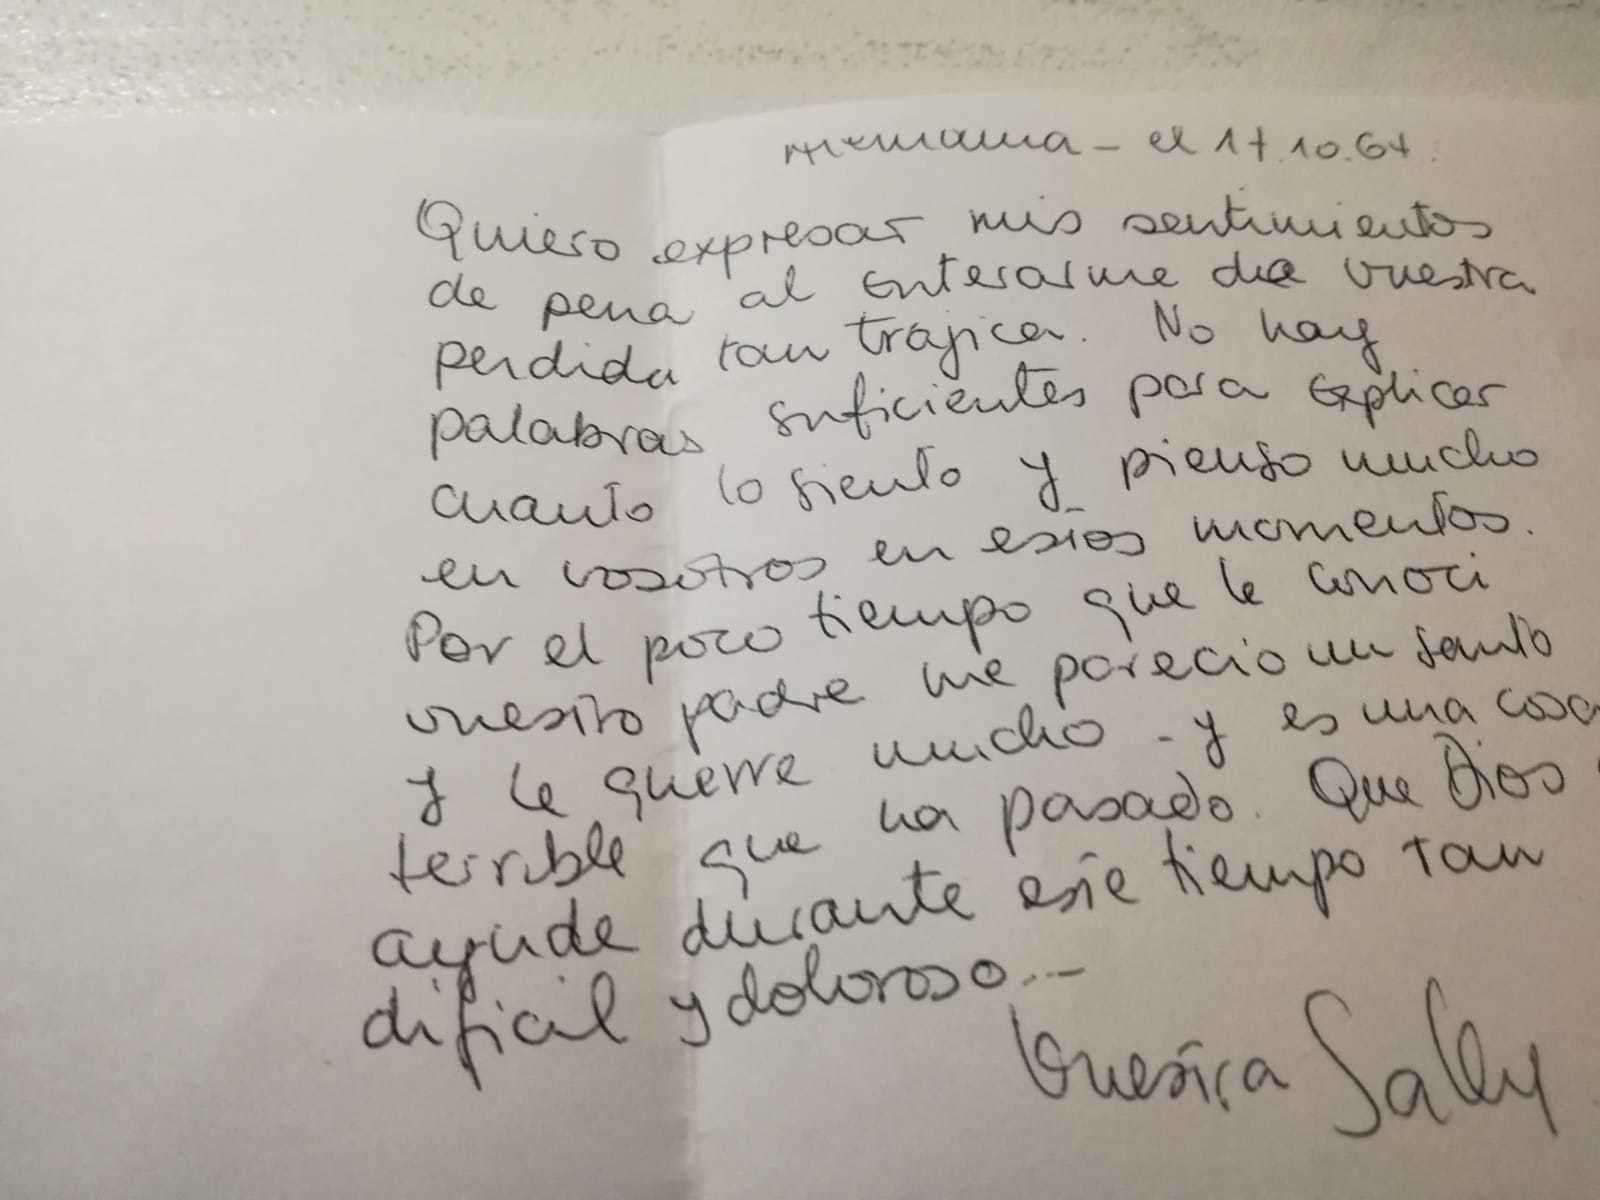 Alemania - el 17.10.67.
Quiero expresar mis sentimientos
de pena al enterarme de vuestra
perdida tan trajica. No hay
palabras suficientes para explicar
cuanto lo siento y pienso mucho
en vosotros en estos momentos.
Por el poco tiempo que le conoci
vuestro padre me parecio un santo
y le querre mucho - y es una cosa
terrible que ha pasado. Que Dios
ayude durante este tiempo tan
dificil y doloroso...-
Vuestra Sally